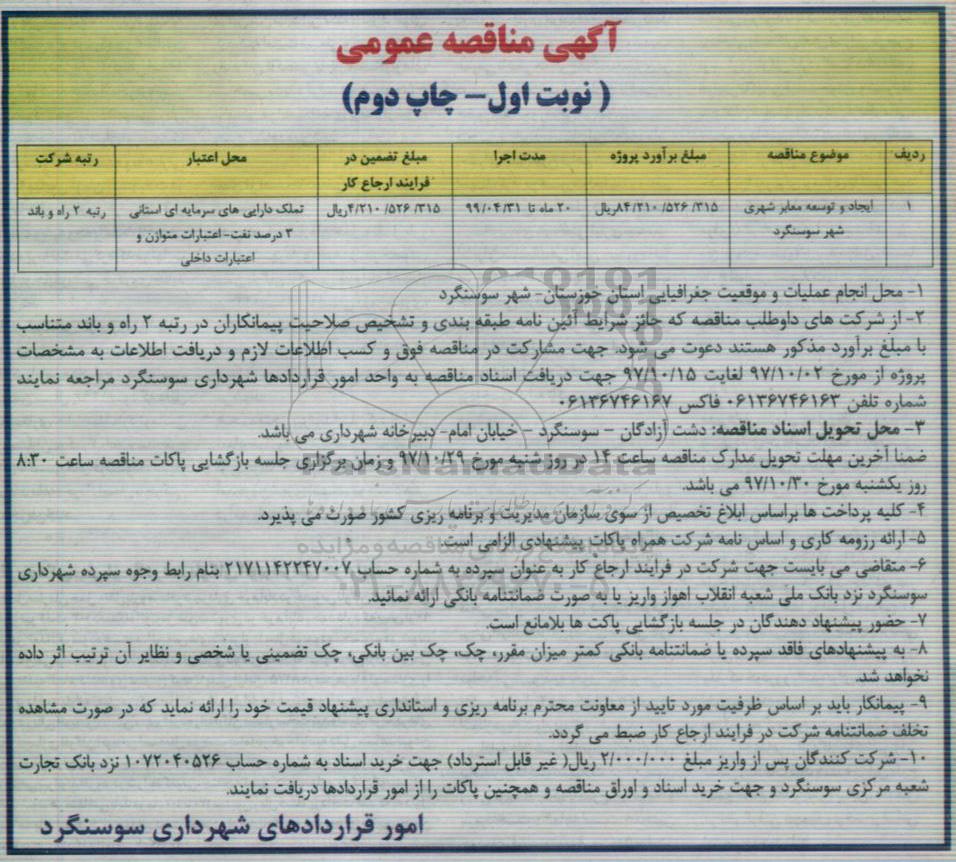 آگهی مناقصه عمومی
( نوبت اول- چاپ دوم)
ردیف موضوع مناقصه مبلغ برآورد پروژه مدت اجرا مبلغ تضمین در محل اعتبار رتبه شرکت
فرایند ارجاع کار
۱ ایجاد و توسعه معابر شهری ۸۴/۲۱۰/۵۲۶/۳۱۵ریال ۲۰ ماه تا ۹۹/۰۴/۳۱ ۴/۲۱۰/۵۲۶/۳۱۵ریال تملک دارایی های سرمایه ای استانی رتبه ۲ راه و باند
شهر سوسنگرد ۳ درصد نفت- اعتبارات متوازن و
اعتبارات داخلی
۱- محل انجام عملیات و موقعیت جغرافیایی استان خوزستان- شهر سوسنگرد
۲- از شرکت های داوطلب مناقصه که حائز شرایط آئین نامه طبقه بندی و تشخیص صلاحیت پیمانکاران در رتبه ۲ راه و باند متناسب
با مبلغ برآورد مذکور هستند دعوت می شود. جهت مشارکت در مناقصه فوق و کسب اطلاعات لازم و دریافت اطلاعات به مشخصات
پروژه از مورخ ۹۷/۱۰/۰۲ لغایت ۹۷/۱۰/۱۵ جهت دریافت اسناد مناقصه به واحد امور قراردادها شهرداری سوسنگرد مراجعه نمایند
شماره تلفن ۰۶۱۳۶۷۴۶۱۶۳ فاکس ۰۶۱۳۶۷۴۶۱۶۷
۳- محل تحویل اسناد مناقصه: دشت آزادگان - سوسنگرد - خیابان امام- دبیرخانه شهرداری می باشد.
ضمنا آخرین مهلت تحویل مدارک مناقصه ساعت ۱۴ در روز شنبه مورخ ۹۷/۱۰/۲۹ و زمان برگزاری جلسه بازگشایی پاکات مناقصه ساعت ۸:۳۰
روز یکشنبه مورخ ۹۷/۱۰/۳۰ می باشد.
۴- کلیه پرداخت ها براساس ابلاغ تخصیص از سوی سازمان مدیریت و برنامه ریزی کشور صورت می پذیرد.
۵- ارائه رزومه کاری و اساس نامه شرکت همراه پاکات پیشنهادی الزامی است.
۶- متقاضی می بایست جهت شرکت در فرایند ارجاع کار به عنوان سپرده به شماره حساب ۲۱۷۱۱۴۲۲۴۷۰۰۷ بنام رابط وجوه سپرده شهرداری
سوسنگرد نزد بانک ملی شعبه انقلاب اهواز واریز یا به صورت ضمانتنامه بانکی ارائه نمائید.
۷- حضور پیشنهاد دهندگان در جلسه بازگشایی پاکت ها بلامانع است.
۸- به پیشنهادهای فاقد سپرده یا ضمانتنامه بانکی کمتر میزان مقرر، چک، چک بین بانکی، چک تضمینی یا شخصی و نظایر آن ترتیب اثر داده
نخواهد شد.
۹- پیمانکار باید بر اساس ظرفیت مورد تایید از معاونت محترم برنامه ریزی و استانداری پیشنهاد قیمت خود را ارائه نماید که در صورت مشاهده
تخلف ضمانتنامه شرکت در فرایند ارجاع کار ضبط می گردد.
۱۰- شرکت کنندگان پس از واریز مبلغ ۲/۰۰۰/۰۰۰ ریال( غیر قابل استرداد) جهت خرید اسناد به شماره حساب ۱۰۷۲۰۴۰۵۲۶ نزد بانک تجارت
شعبه مرکزی سوسنگرد و جهت خرید اسناد و اوراق مناقصه و همچنین پاکات را از امور قراردادها دریافت نمایند.
امور قراردادهای شهرداری سوسنگرد